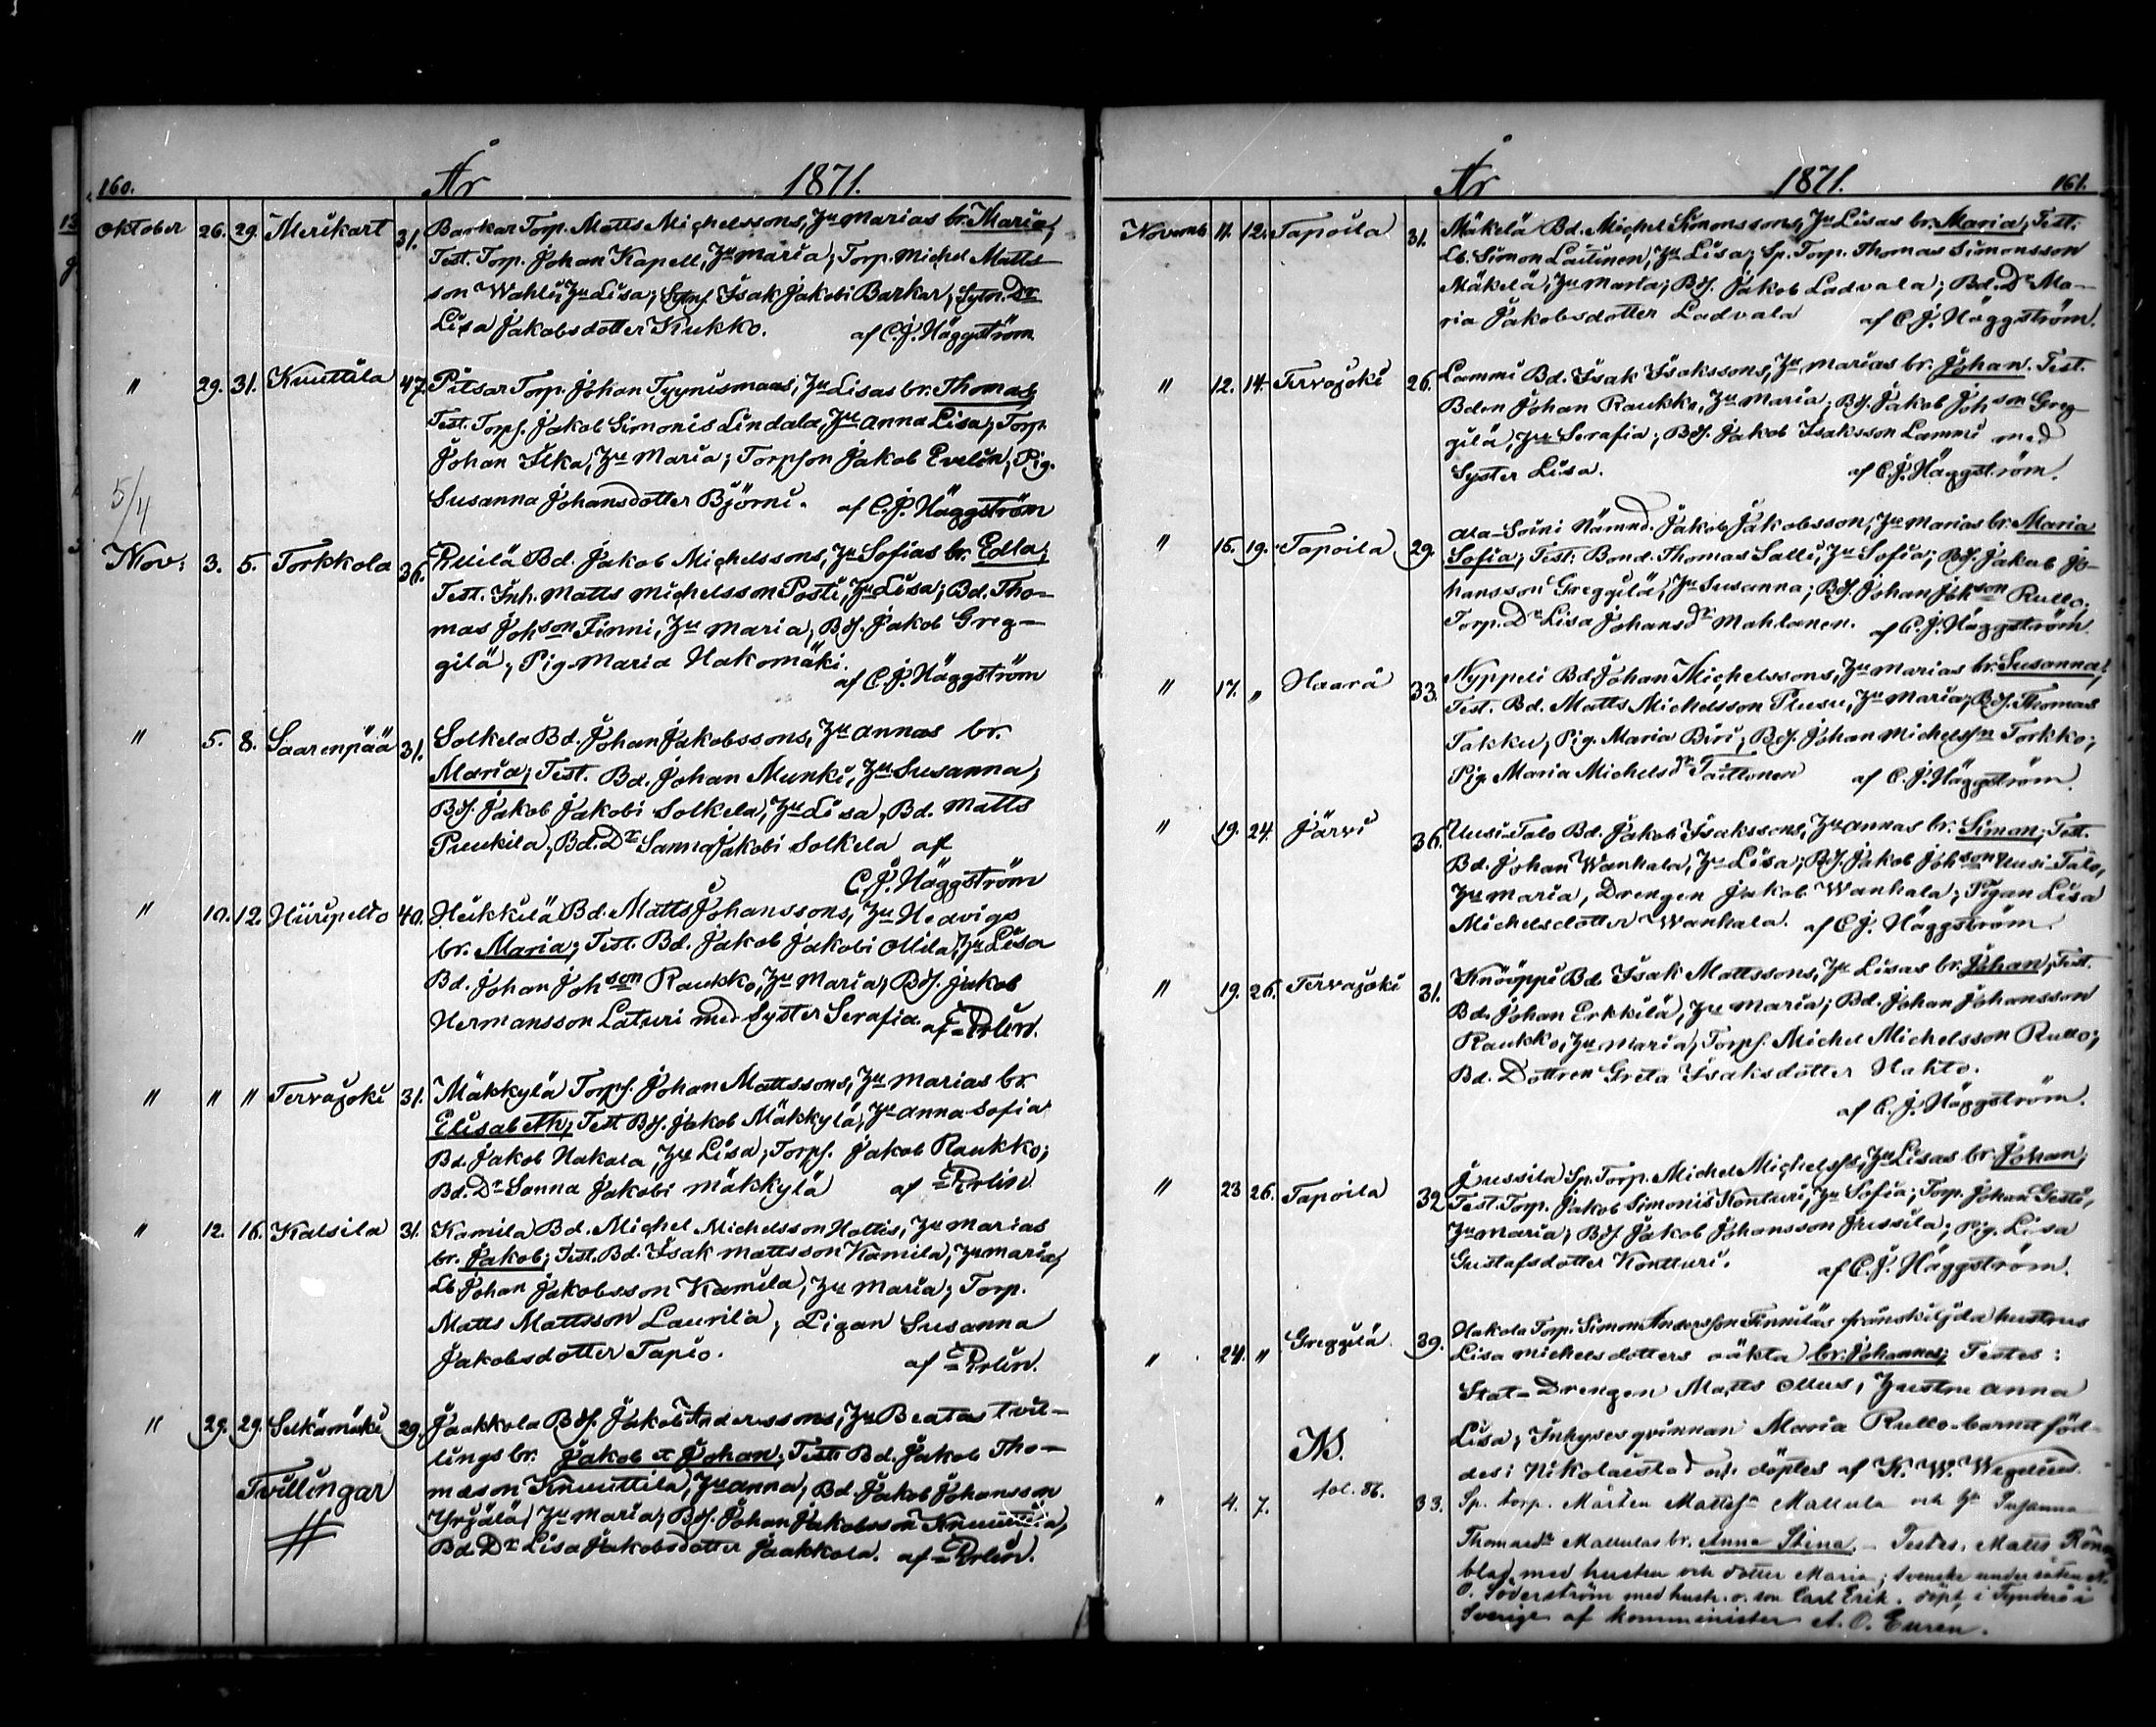 160. År 1871.
Oktober 26. 29. Merikart 31. Barkar Torp. Matts Michelssons, Hu Marias br. Maria;
Test. Torp. Johan Kapell, Hu Maria; Torp. Michel Matts
son Wahli, Hu Lisa; Sytnf Isak Jakobi Barkar, Sytn. Dr
Lisa Jakobsdotter Kukko. af C. J. Häggström
" 29. 31. Knuttila 47. Pitsar Torp. Johan Tyynismaas, Hu Lisas br. Thomas;
Test. Torpf. Jakob Simonis Lindala, Hu Anna Lisa; Torp.
Johan Ilka, Hu Maria; Torpson Jakob Evelin, Pig.
Susanna Johansdotter Björni. af C. J. Häggström
5/4
Nov: 3. 5. Torkkola 36. Reilä Bd. Jakob Michelssons, Hu Sofias br. Edla;
Test. Inh. Matts Michelsson Posti, Hu Lisa; Bd. Tho-
mas Johson Finni, Hu Maria, Bdf. Jakob Greg-
gilä, Pig. Maria Hakomäki.
af C. J. Häggström
" 5. 8. Saarenpää 31. Solkela Bd. Johan Jakobssons, Hu Annas br.
Maria; Test. Bd. Johan Munki, Hu Susanna;
Bdf. Jakob Jakobi Solkela, Hu Lisa, Bd. Matts
Puukila, Bd. Dr Sanna Jakobi Solkela af
C. J. Häggström
" 10. 12. Hiiripelto 40. Heikkilä Bd. Matts Johanssons, Hu Hedvigs
br. Maria; Test. Bd. Jakob Jakobi Ollila, Hu Lisa
Bd. Johan Johson Raukko, Hu Maria, Bdf. Jakob
Hermansson Laturi med Syster Serafia. af Polin.
" " " Tervajoki 31. Mäkkylä Torpf. Johan Mattssons, Hu Marias br.
Elisabeth; Test Bdf. Jakob Mäkkylä, Hu Anna Sofia
Bd. Jakob Hakala, Hu Lisa; Torpf. Jakob Raukko;
Bd. Dr Sanna Jakobi Mäkkylä af Polin
" 12. 16. Kalsila 31. Kamila Bd. Michel Michelsson Hattis, Hu Marias
br. Jakob; Test. Bd. Isak Mattsson Kamila, Hu Maria;
Lb. Johan Jakobsson Kamila, Hu Maria; Torp.
Matts Mattsson Laurila; Pigan Susanna
Jakobsdotter Tapio. af Polin.
" 29. 29. Selkämäki 29. Jaakkola Bdf. Jakob Anderssons, Hu Beatas tvil-
lings br. Jakob et Johan; Test. Bd. Jakob Tho-
Tvillingar masson Knuuttila, Hu Anna; Bd. Jakob Johansson
Yrjälä, Hu Maria; Bdf. Johan Jakobsson Knuuttila,
Bd. Dr Lisa Jakobsdotter Jaakkola. af Polin.
År 1871. 161.
Novemb 11. 12. Tapoila 31. Mäkelä Bd. Michel Simonssons, Hu Lisas br. Maria; Test.
Lb. Simon Laitinen, Hu Lisa; Sp. Torp. Thomas Simonsson
Mäkelä, Hu Maria; Bdf. Jakob Ladvala; Bd. Dr Ma-
ria Jakobsdotter Ladvala af C. J. Häggström.
" 12. 14. Tervajoki 26. Lammi Bd. Isak Isakssons, Hu Marias br. Johan. Test.
Bden Johan Raukko, Hu Maria; Bdf. Jakob Johson Greg-
gilä, Hu Serafia; Bdf. Jakob Isaksson Lammi med
Syster Lisa. af C. J. Häggström.
" 15. 19. Tapoila 29. Ala-Soini Nämnd. Jakob Jakobsson, Hu Marias br. Maria
Sofia; Test: Bond. Thomas Salli, Hu Sofia; Bdf. Jakob Jo-
hansson Greggilä, Hu Susanna; Bdf. Johan Johson Rullo;
Torp. Dr Lisa Johansdr Mahlanen. af C. J. Häggström.
" 17. " Haarå 33. Nyppeli Bd Johan Michelssons, Hu Marias br. Susanna;
Test. Bd. Matts Michelsson Plusu, Hu Maria; Bdf. Thomas
Takku, Pig. Maria Biri; Bdf. Johan Michelssn Torkko;
Pig Maria Michelsdr Taittonen af C. J. Häggström.
" 19. 24. Järvi 36. Uusi-Talo Bd. Jakob Isakssons, Hu Annas br. Simon; Test.
Bd. Johan Wanhala, Hu Lisa; Bdf. Jakob Johson Uusi-Talo,
Hu Maria, Drengen Jakob Wanhala; Pigan Lisa
Michelsdotter Wanhala. af C. J. Häggström.
" 19. 26. Tervajoki 31. Knööppi Bd. Isak Mattssons, Hu Lisas br. Johan; Test.
Bd. Johan Erkkilä, Hu Maria; Bd. Johan Johansson
Raukko, Hu Maria; Torpf. Michel Michelsson Rullo;
Bd. Dottren Greta Isaksdotter Hahto.
af C. J. Häggström.
" 23 26. Tapoila 32 Jussila Sp. Torp. Michel Michelsfs, Hu Lisas br Johan;
Test. Torp. Jakob Simonis Konturi, Hu Sofia; Torp. Johan Gesti,
Hu Maria; Bdf. Jakob Johansson Jussila; Pig. Lisa
Gustafsdotter Kontturi. af C. J. Häggström.
" 24. " Greggilä 39. Hakola Torp. Simon Andersson Finniläs frånskiljda hustrus
Lisa Michelsdotters oäkta br. Johannes; Testes:
Stat-Drengen Matts Ollus, Hustru Anna
Lisa; Inhyses qvinnan Maria Rullo - barnet föd-
des i Nikolaistad och döptes af K. W. Wegelius.
" 4. 7. fol. 86. 33. Sp. torp. Mårten Mattsfn Mallula och Hu Susanna
Thomasdr Mallulas br. Anna Stina. - Testes, Matts Rön
blad med hustru och dotter Maria; Svenske undersåten A.
O. Söderström med hustr. o. son Carl Erik. döpt i Tynderö i
Sverige af komminister A. O. Euren.